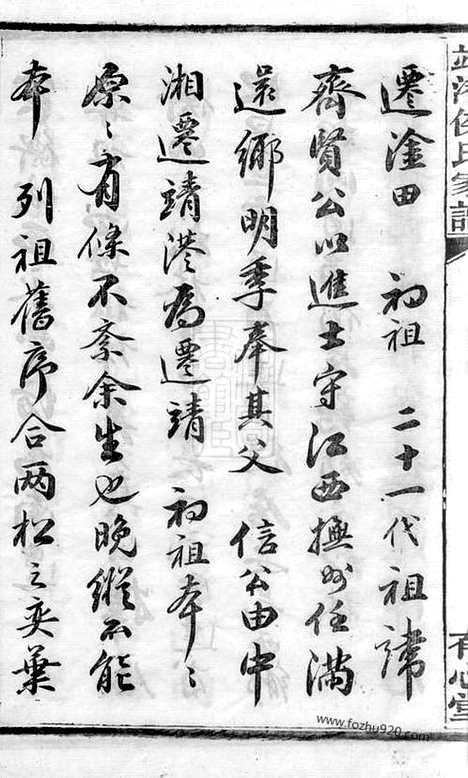 遷淦田　初祖　二十一代祖諱
齊賢公以進士守江西撫州任滿
還鄉明季奉其父　信公由中
湘遷靖港為遷靖　初祖本〻
原〻有條不紊余生也晚縱不能
本　列祖舊序合兩松之奕葉
靖港侯氏家譜
有心堂
www.fozhu920.com